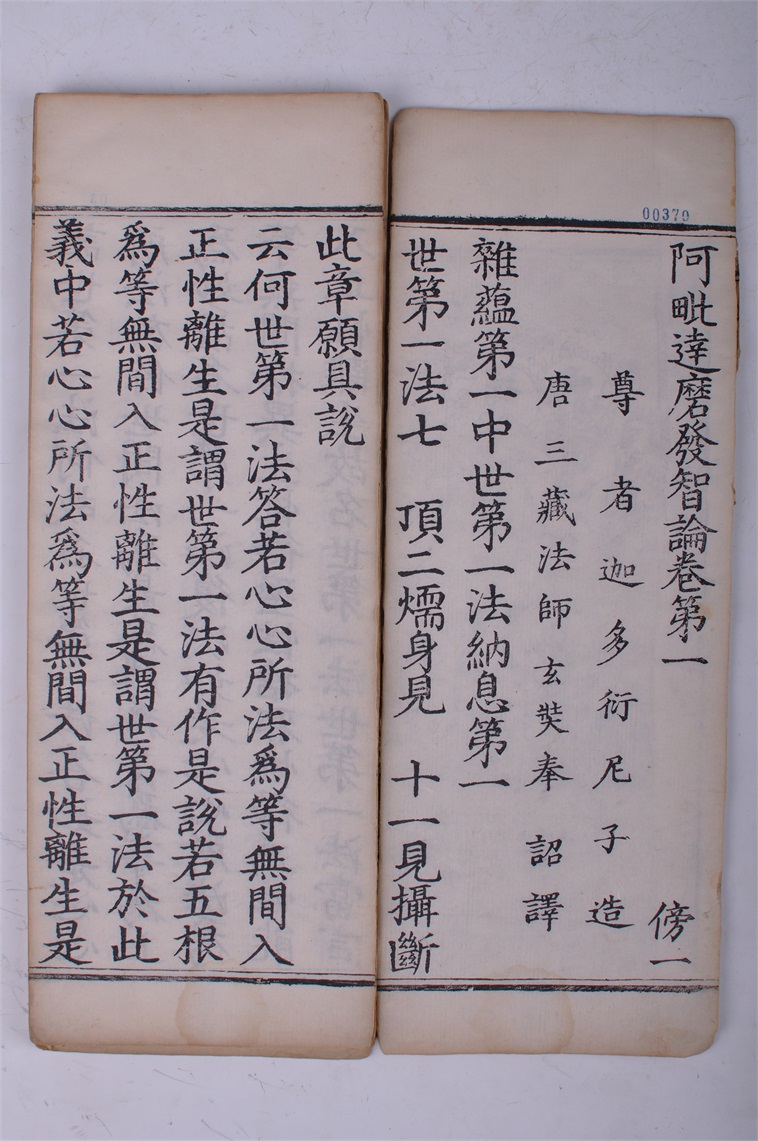 00379
阿毗達磨發智論卷第一 傍一
尊者迦多衍尼子造
唐三藏法師玄奘奉 詔譯
雜蘊第一中世第一法納息第一
世第一法七 頂二煗身見 十一見攝斷
此章願具說
云何世第一法答若心心所法為等無間入
正性離生是謂世第一法有作是說若五根
為等無間入正性離生是謂世第一法於此
義中若心心所法為等無間入正性離生是